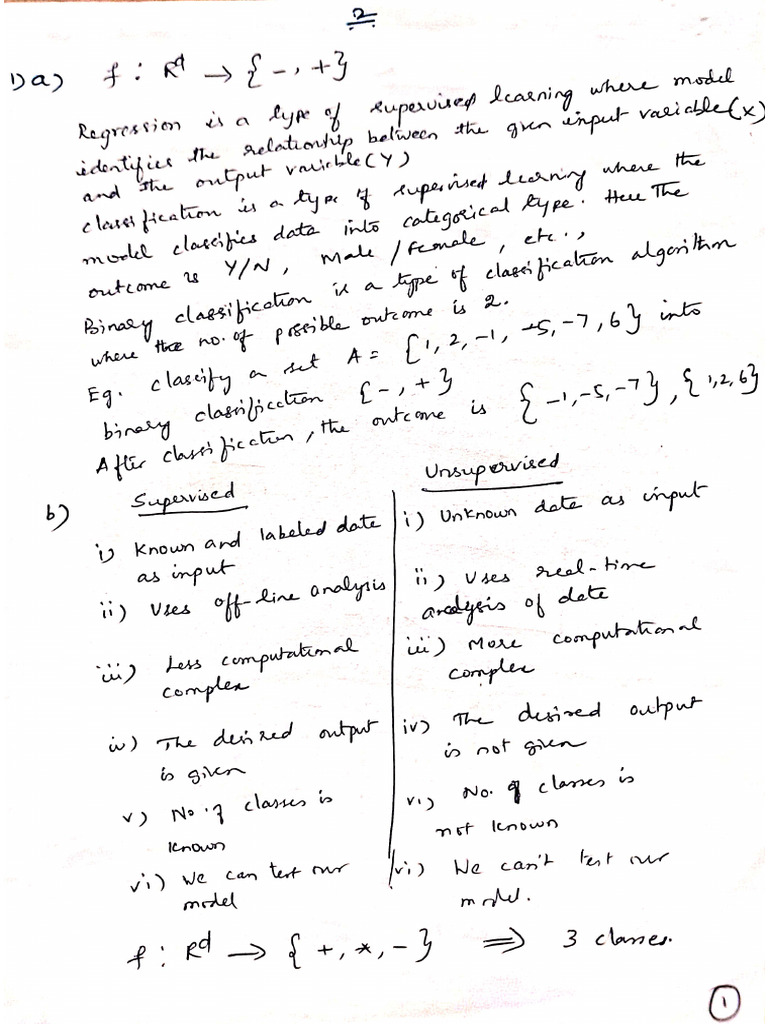 2
1) a) f : R^d → {-, +}
Regression is a type of supervised learning where model
identifies the relationship between the given input variable(x)
and the output variable(Y)
classification is a type of supervised learning where the
model classifies data into categorical type. Here The
outcome is Y/N, Male/Female, etc.,
Binary classification is a type of classification algorithm
where the no. of possible outcome is 2.
Eg. classify a set A = {1, 2, -1, -5, -7, 6} into
binary classification {-, +}
After classification, the outcome is {-1, -5, -7}, {1, 2, 6}
b) Supervised Unsupervised
i) Known and labeled date i) Unknown date as input
as input
ii) Uses off-line analysis ii) Uses real-time
analysis of date
iii) Less computational iii) More computational
complex complex
iv) The desired output iv) The desired output
is given is not given
v) No. of classes is vi) No. of classes is
known not known
vi) We can test our vi) We can't test our
model model.
f : R^d → {+, *, -} ⇒ 3 classes.
1